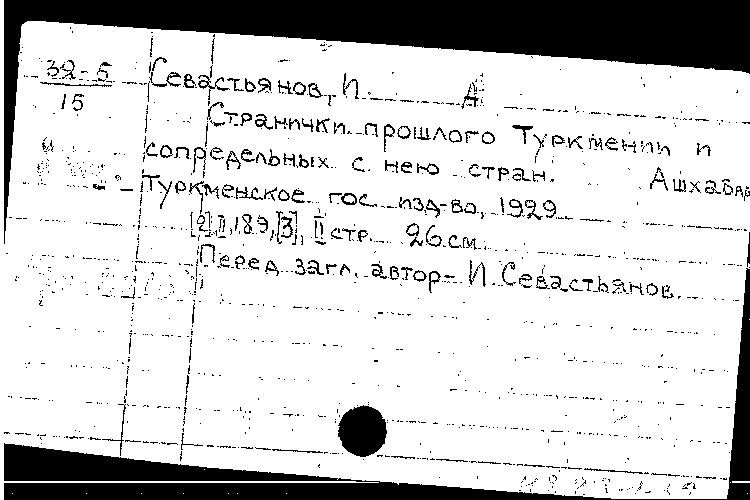 32-5
15
Севастьянов, И. А
Странички прошлого Туркмении и
сопредельных с нею стран. Ашхабад
Туркменское гос. изд-во, 1929
[2], II, 189, [3], II стр. 26 см.
Перед загл. автор- И. Севастьянов.